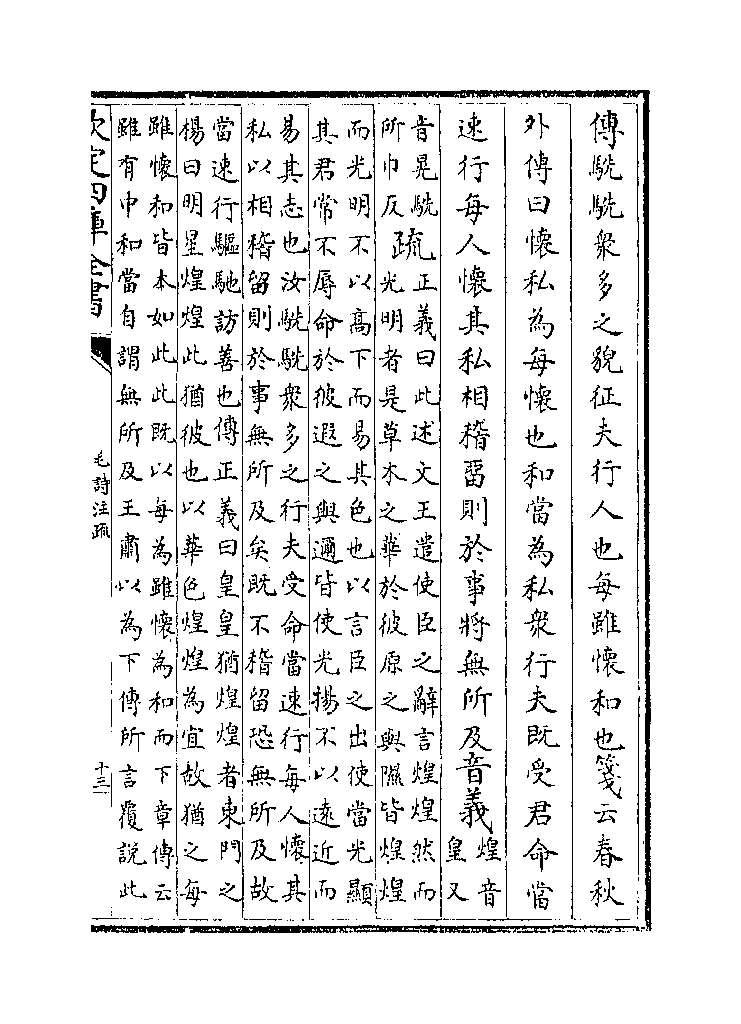 傳駪駪衆多之貌征夫行人也每雖懷和也箋云春秋
外傳曰懷私為每懷也和當為私衆行夫既受君命當
速行每人懷其私相稽留則於事將無所及音義煌音皇又
音晃駪所巾反疏正義曰此述文王遣使臣之辭言煌煌然而光明者是草木之華於彼原之與隰皆煌煌
而光明不以高下而易其色也以言臣之出使當光顯其君常不辱命於彼遐之與邇皆使光揚不以遠近而
易其志也汝駪駪衆多之行夫受命當速行每人懷其私以相稽留則於事無所及矣既不稽留恐無所及故
當速行驅馳訪善也傳正義曰皇皇猶煌煌者東門之楊曰明星煌煌此猶彼也以華色煌煌為宜故猶之每
雖懷和皆本如此此既以每為雖懷為和而下章傳云雖有中和當自謂無所及王肅以為下傳所言覆說此
欽定四庫全書
毛詩注疏
十三